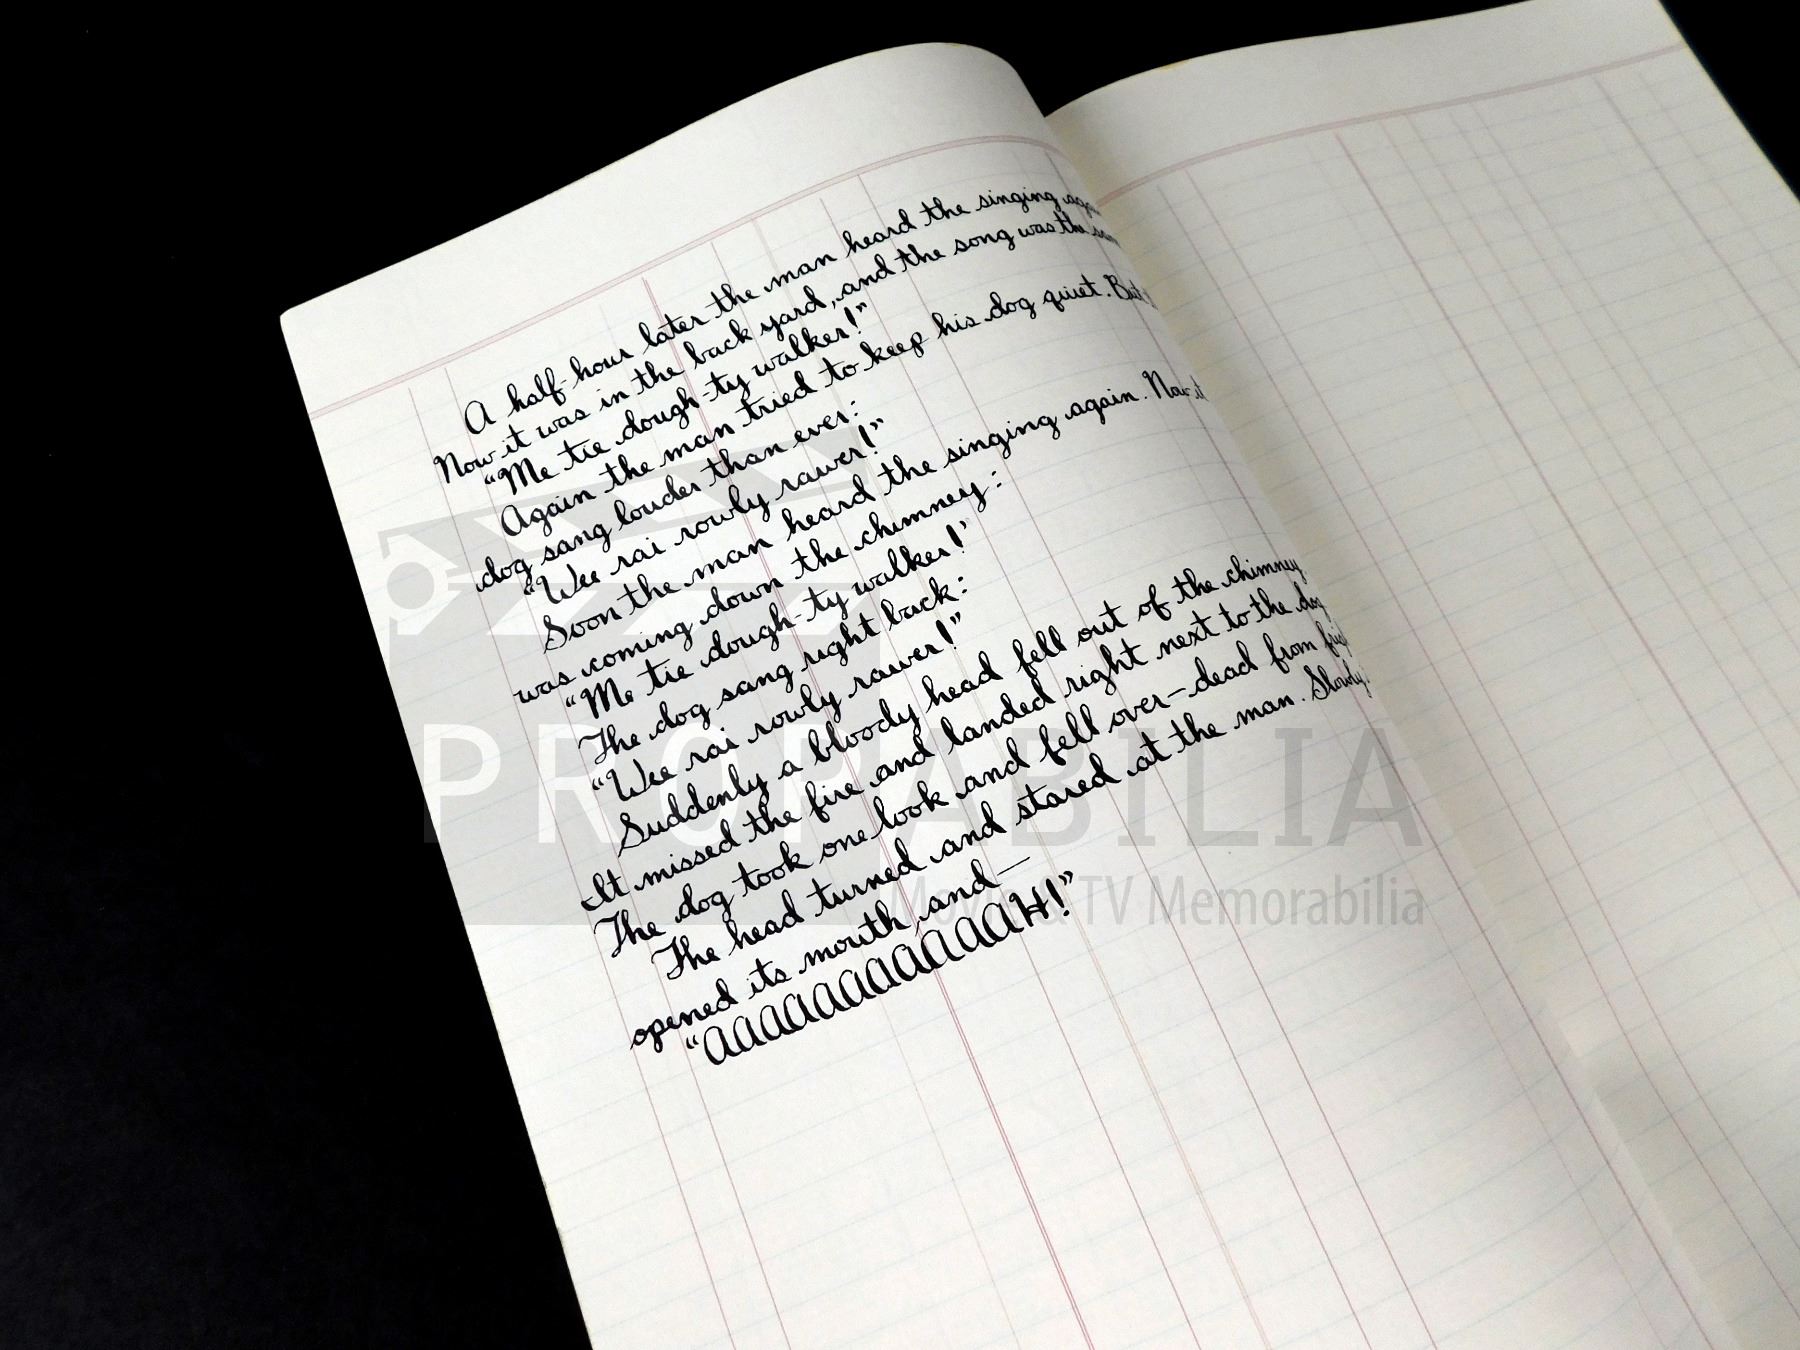 A half-hour later the man heard the singing
Now it was in the back yard, and the song was the
"Me tie dough-ty walker!"
Again the man tried to keep his dog quiet. But
dog sang louder than ever:
"Wee rai rowly rawer!"
Soon the man heard the singing again. Now it
was coming down the chimney:
"Me tie dough-ty walker!"
The dog sang right back:
"Wee rai rowly rawer!"
Suddenly a bloody head fell out of the chimney.
It missed the fire and landed right next to the dog
The dog took one look and fell over—dead from
The head turned and stared at the man. Slowly
opened its mouth and—
"AAAAAAAAAAAAH!"
PROPABILIA
Movie & TV Memorabilia